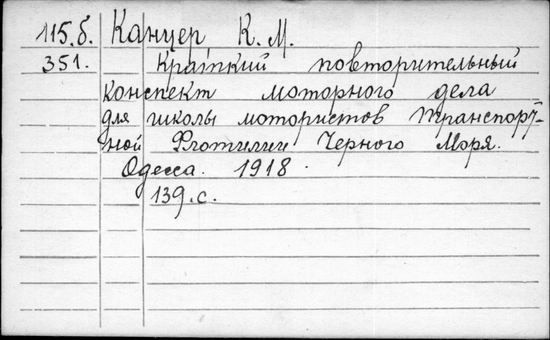 115.б. Канцер К. М.
351. Краткий повторительный
конспект моторного дела
для школы мотористов транспорт-
ной Флотилии Черного Моря.
Одесса. 1918.
139.с.